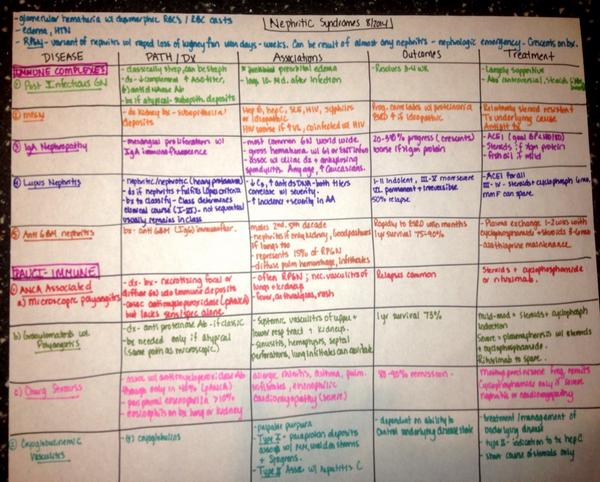 Nephritic Syndromes 8/2014
-glomerular hematuria w/ dysmorphic RBCs / RBC casts
- edema, HTN
- RPGN - variant of nephritis w/ rapid loss of kidney fxn w/in days - weeks. Can be result of almost any nephritis - nephrologic emergency - Crescents on bx.
DISEASE PATH/DX Associations Outcomes Treatment
IMMUNE COMPLEXES
① Post Infectious GN
-classically strep, can be staph
- dx - ↓ complement + ASO titer,
⊕ anti DNAase Ab
- bx if atypical - subepith. deposits
periorbital edema
- lag 10 after infection
- Resolves
- Largely supportive
- Abx controversial, steroids
② MPGN
- dx kidney bx - subepithelial
deposits
Hep B, hep C, SLE, HIV, syphilis
or idiopathic
HIV worse if ↑VL, coinfected w/ HIV
Prog. correlates w/ proteinuria
ESRD if idiopathic
Relatively steroid resistant
Tx underlying cause
③ IgA Nephropathy
- mesangial proliferation w/
IgA immunofluorescence
- most common GN world wide
- gross hematuria w/ GI or
- assoc w/ celiac dx + ankylosing
spondylitis. Any age, ↑ Caucasians.
20-40% progress (crescents)
worse if 1gm protein
- ACEI
- Steroids if 1gm protein
- fish oil if mild
④ Lupus Nephritis
- nephritic/nephrotic (heavy proteinuria)
- dx if nephritis + fulfills Lupus criteria
- bx to classify - Class determines
clinical course (I-VI) - not sequential
usually remains in class
↓ C3, ↑ anti dsDNA - both titers
correlate w/ severity.
↑ incidence + severity in AA
I-II indolent, III-V more severe
VI. permanent + irreversible
50% relapse
- ACEI for all
III - IV - Steroids + cyclophosph
MMF can spare
⑤ Anti GBM Nephritis
bx - anti GBM (IgG) immunofluor.
males 2nd-5th decade
- nephritis if only kidney, Goodpastures
if lungs too
- represents 15% of RPGN
- diffuse pulm hemorrhage, infiltrates
Rapidly to ESRD w/in months
1yr survival 75-90%
- Plasma exchange 1-2 wks with
cyclophosphamide + steroids
- azathioprine maintenance
PAUCI-IMMUNE
① ANCA Associated
a) Microscopic polyangiitis
- dx - bx - necrotizing focal or
diffuse GN w/o immune deposits
- assoc antimyeloperoxidase (pANCA)
but lacks sens/spec alone
- often RPGN; nec. vasculitis of
lungs + kidneys
- fever, arthralgias, rash
Relapses common
Steroids + cyclophosphamide
or rituximab.
b) Granulomatosis w/
Polyangiitis
- dx - anti proteinase Ab - if classic
- bx needed only if atypical
(same path as microscopic)
- Systemic vasculitis of upper +
lower resp tract + kidneys.
- sinusitis, hemoptysis, septal
perforations, lung infiltrates can cavitate
1yr survival 73%
mild-mod = steroids + cyclophosph
induction
Severe = plasmapheresis w/ steroids
+ cyclophosphamide.
Rituximab to spare
c) Churg Strauss
- assoc w/ antimyeloperox. dase Ab
though only in (pANCA)
- peripheral eosinophilia >10%
- eosinophils on bx lung or kidney
allergic rhinitis, asthma, pulm.
infiltrates, eosinophilic
cardiomyopathy (severe)
80-90% remission
Cyclophosphamide only if severe
nephritis or cardiomyopathy
② Cryoglobulinemic
Vasculitis
- (+) cryoglobulins
- palpable purpura
- Type I - paraprotein deposits
assoc w/
+ Sjogrens.
- Type II Assoc. w/ hepatitis C
- dependent on ability to
control underlying disease state
- treatment / management of
underlying disease
- type II - indication to tx hep C
- short course of steroids only